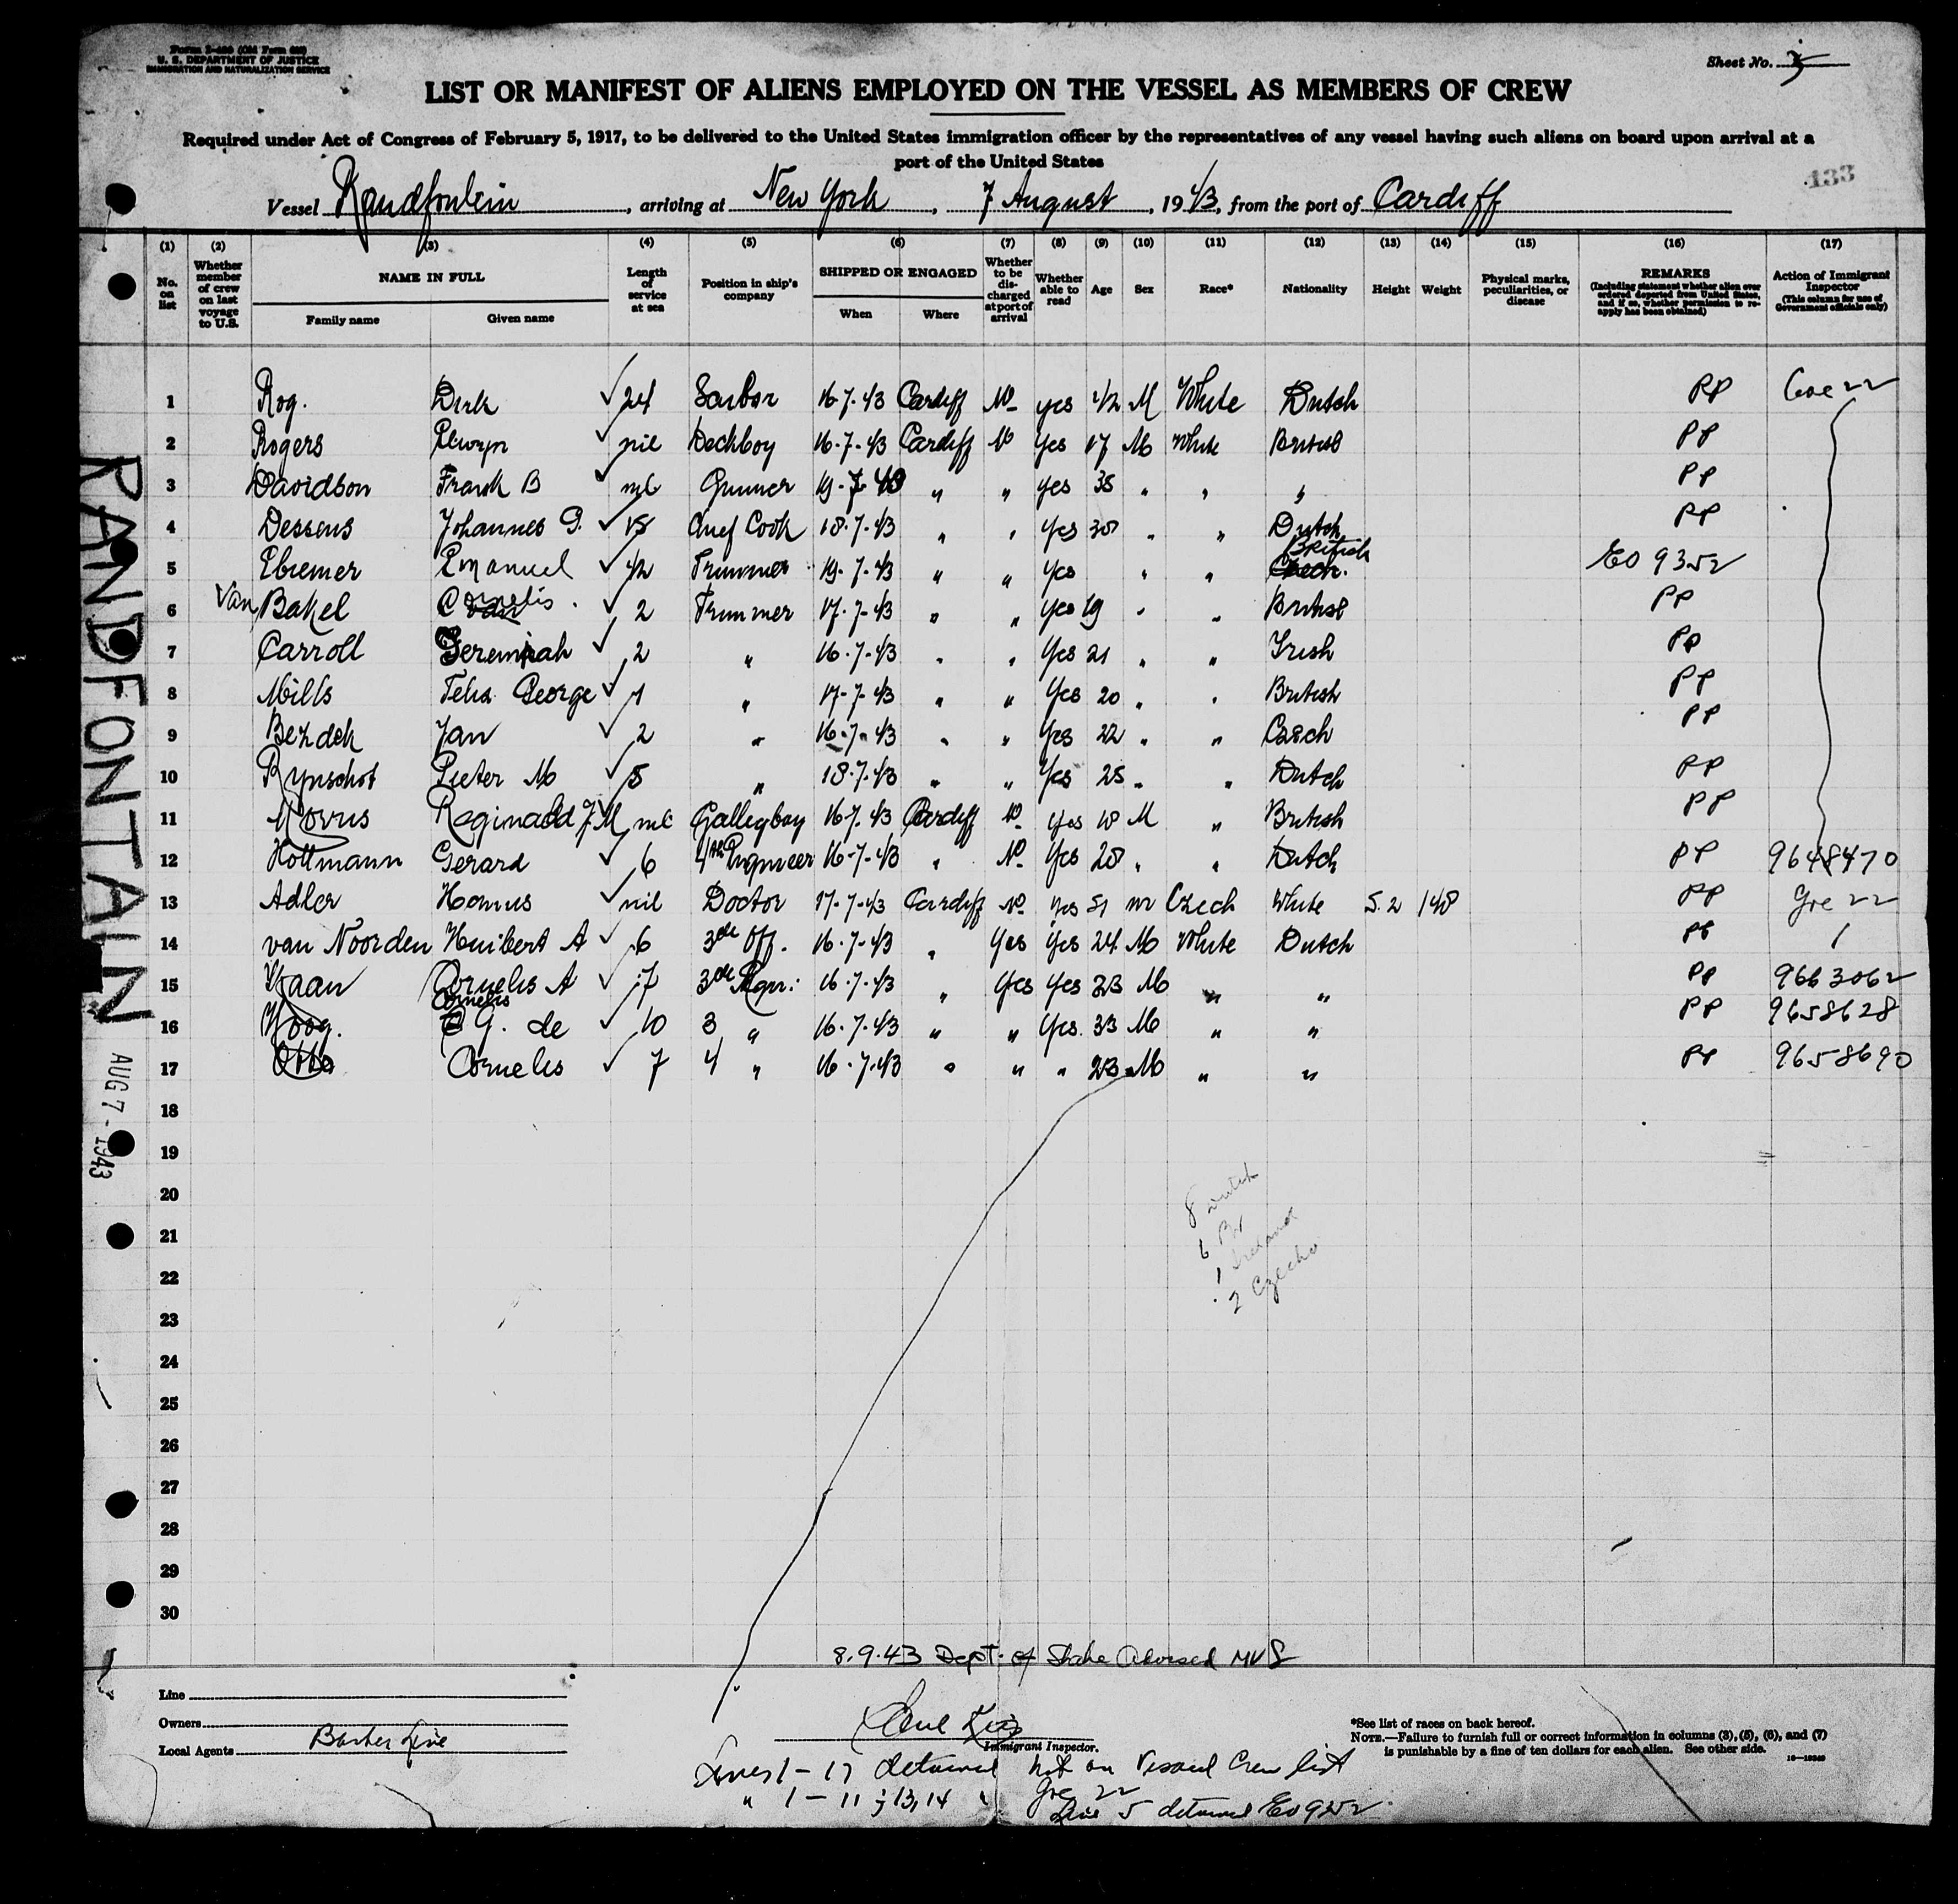 Form I-480 (Old Form 689)
U. S. DEPARTMENT OF JUSTICE
IMMIGRATION AND NATURALIZATION SERVICE
Sheet No.
LIST OR MANIFEST OF ALIENS EMPLOYED ON THE VESSEL AS MEMBERS OF CREW
Required under Act of Congress of February 5, 1917, to be delivered to the United States immigration officer by the representatives of any vessel having such aliens on board upon arrival at a
port of the United States
133
Vessel Randfontein, arriving at New York, 7 August, 1943, from the port of Cardiff
(1) (2) (3) (4) (5) (6) (7) (8) (9) (10) (11) (12) (13) (14) (15) (16) (17)
No. on list
Whether member of crew on last voyage to U.S.
NAME IN FULL
Family name
Given name
Length of service at sea
Position in ship's company
SHIPPED OR ENGAGED
When
Where
Whether to be discharged at port of arrival
Whether able to read
Age
Sex
Race*
Nationality
Height
Weight
Physical marks, peculiarities, or disease
REMARKS
(Including statement whether alien ever ordered deported from United States, and if so, whether permission to reapply has been obtained)
Action of Immigrant Inspector
(This column for use of Government officials only)
1 Rog. Dirk 24 16.7.43 Cardiff No yes 42 M White Dutch PP
2 Rogers nil Deckboy 16-7-43 Cardiff No Yes 17 M White British PP
3 Davidson Frank B nil Gunner 19-7-43 " " yes 38 " " " PP
4 Dessens Johannes G. 18 Chief Cook 18.7.43 " " Yes 30 " " Dutch PP
5 Emanuel 42 Trimmer 19.7.43 " " Yes " " Czech. British EO 9352
6 Van Bakel Cornelis 2 Trimmer 17.7-43 " " yes 19 " " British PP
7 Carroll Jeremiah 2 " 16.7.43 " " Yes 21 " " Irish PP
8 Mills Felix George 1 " 17-7-43 " " Yes 20 " " British PP
9 Bezdek Jan 2 " 16-7-43 " " Yes 22 " " Czech PP
10 Rynschot Pieter M 8 " 18.7.43 " " Yes 25 " " Dutch PP
11 Reginald J M nil Galleyboy 16.7.43 Cardiff No yes 18 M " British PP
12 Holtmann Gerard 6 4th Engineer 16-7-43 " No Yes 28 " " Dutch PP 9648470
13 Adler Hannus nil Doctor 17-7-43 Cardiff No yes 51 m Czech White 5.2 148 PP
14 van Noorden Huibert A 6 3de Off. 16.7.43 " Yes Yes 24 M White Dutch PP
15 Kaan Cornelis A 7 3de Engr: 16.7.43 " Yes Yes 23 M " " PP 9663062
16 Hoog. Cornelis G. de 10 3 " 16.7.43 " " Yes. 33 M " " PP 9658628
17 Otto Cornelis 7 4 " 16.7.43 " " " 23 M " " PP 9658690
18
19
20
21
22
23
24
25
26
27
28
29
30
8 Dutch
6 Br
1 Ireland
2 Czecho
RANDFONTAIN
AUG 7 - 1943
8.9.43 Dept. of State Advised MVS
Line
Owners
Local Agents Barber Line
Immigrant Inspector.
Lines 1-17 detained not on Visaed Crew list
" 1-11 ; 13, 14 "
Line 5 detained EO 9352
*See list of races on back hereof.
NOTE.—Failure to furnish full or correct information in columns (3), (5), (6), and (7)
is punishable by a fine of ten dollars for each alien. See other side.